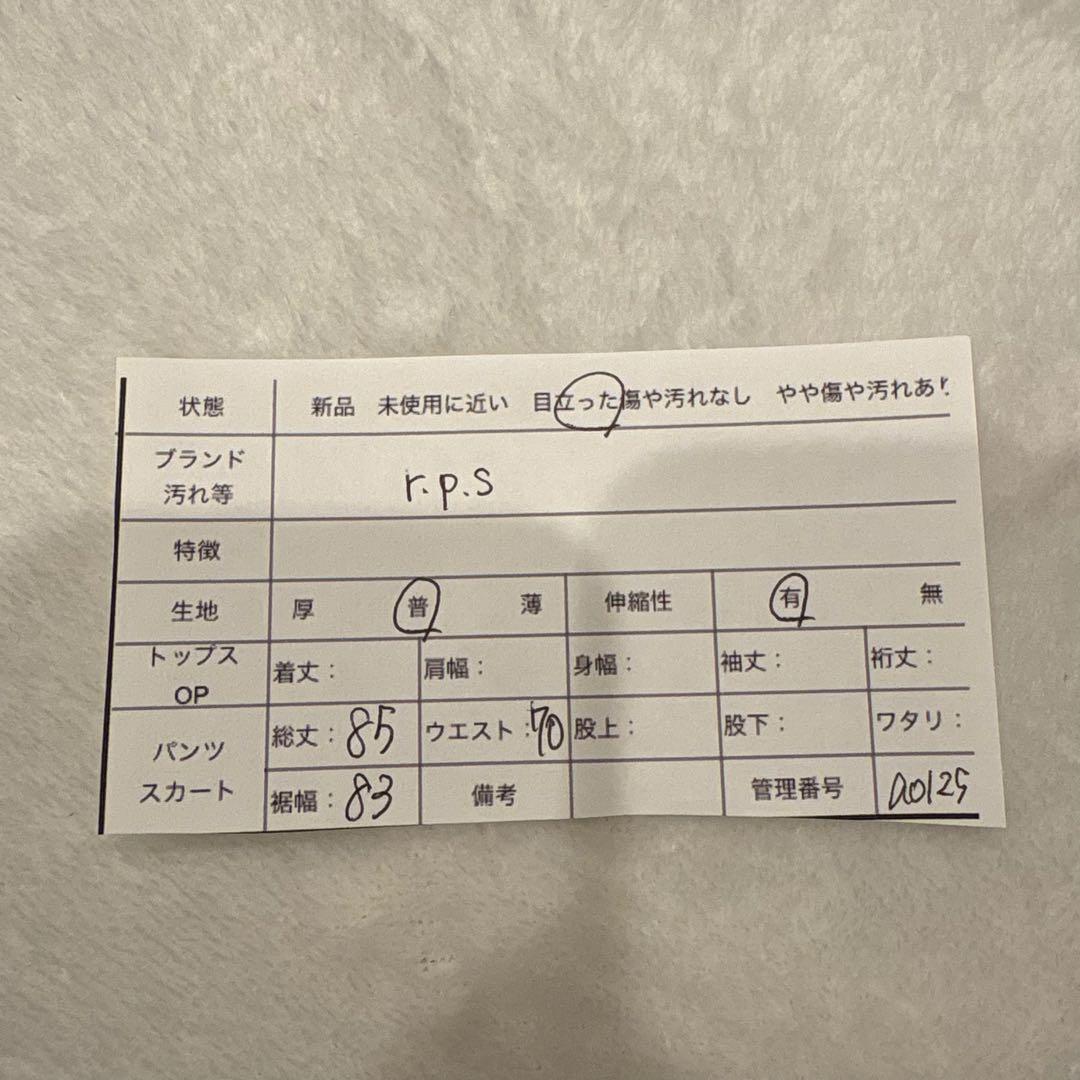 状態 新品 未使用に近い 目立った傷や汚れなし やや傷や汚れあり
ブランド
汚れ等 r.p.s
特徴
生地 厚 普 薄 伸縮性 有 無
トップス
OP 着丈： 肩幅： 身幅： 袖丈： 裄丈：
パンツ
スカート
総丈：85 ウエスト：70 股上： 股下： ワタリ：
裾幅：83 備考 管理番号 a0125